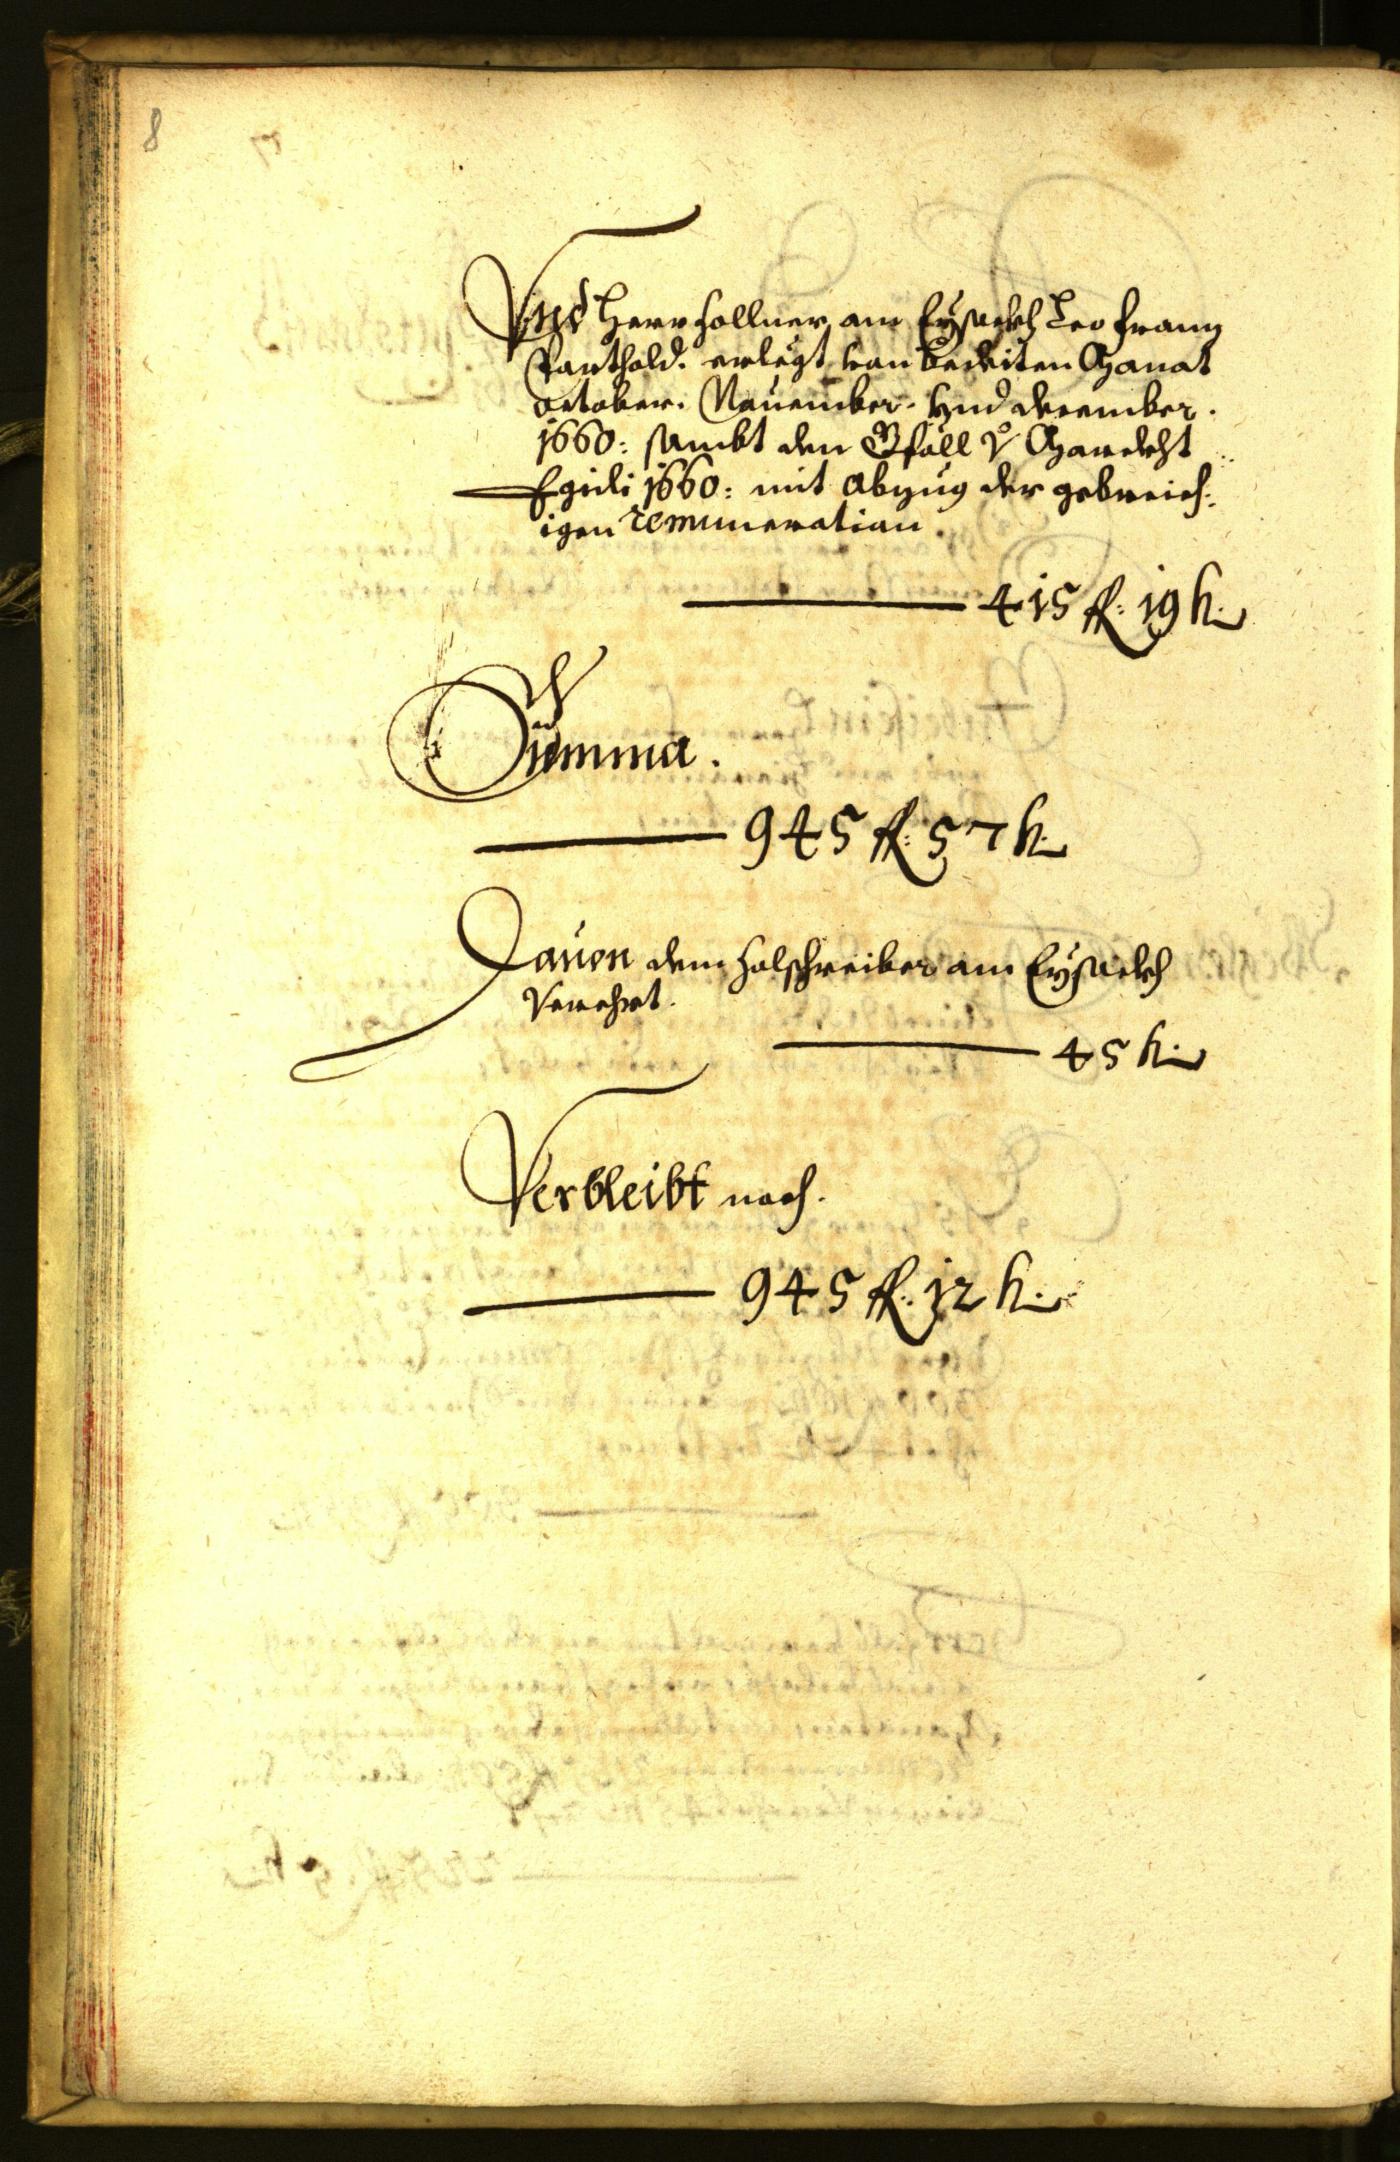 8
Vnd Herr Zollner am Eysackh Leo Franz
Parthold. erlegt von bediten Monat
October. Nouember. vnd December.
1660: sambt den Gföll Marckht
Egidi 1660: mit abzug der gebreich:
igen remuneration
415 fl: 19 k.
Summa.
945 fl: 57 k.
Dauon dem Zolschreiber am Eysackh
Verehrt.
45 k.
Verbleibt noch.
945 fl: 12 k.